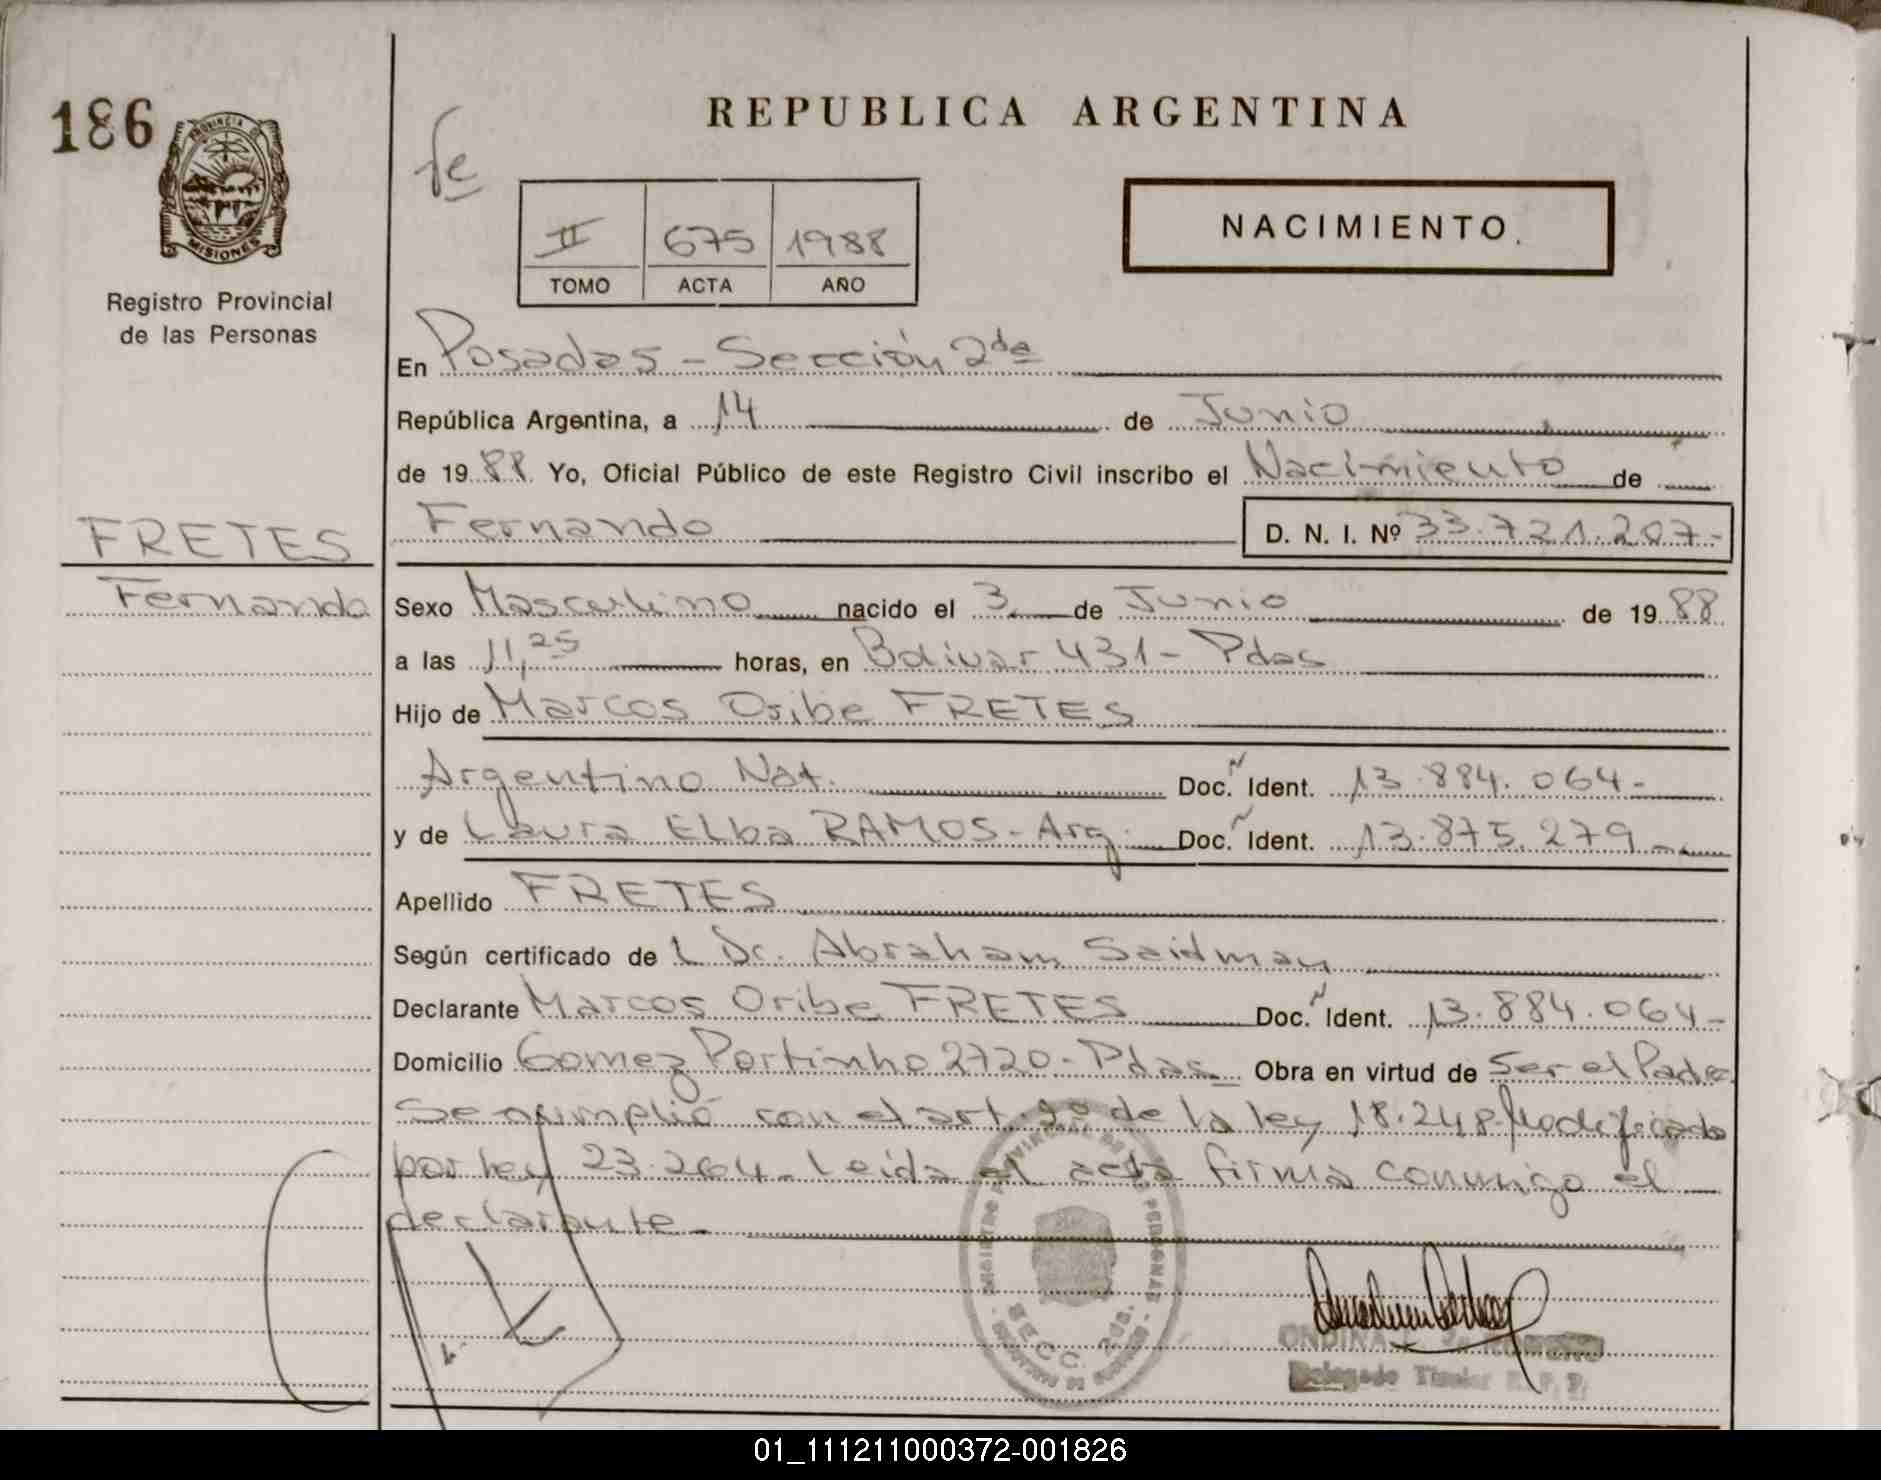 186
PROVINCIA DE
MISIONES
Registro Provincial
de las Personas
REPUBLICA ARGENTINA
II 675 1988
TOMO ACTA AÑO
NACIMIENTO
En Posadas - Sección 2da
República Argentina, a 14 de Junio
de 1988 Yo, Oficial Público de este Registro Civil inscribo el Nacimiento de
Fernando D. N. I. Nº 33.721.207-
FRETES
Fernando
Sexo Masculino nacido el 3 de Junio de 1988
a las 11,25 horas, en Bolivar 431 - Pdas
Hijo de Marcos Oribe FRETES
Argentino Nat. Doc. Ident. 13.884.064-
y de Laura Elba RAMOS - Arg. Doc. Ident. 13.875.279-
Apellido FRETES
Según certificado de L Dr. Abraham Saidman
Declarante Marcos Oribe FRETES Doc. Ident. 13.884.064-
Domicilio Gomez Portinho 2720 - Pdas Obra en virtud de Ser el Padre
Se cumplió con el art. 2º de la ley 18.248 Modificado
por ley 23.264 - Leida el acta firma conmigo el
declarante -
SECC. 2da.
Delegado Titular R. P. P.
01_111211000372-001826